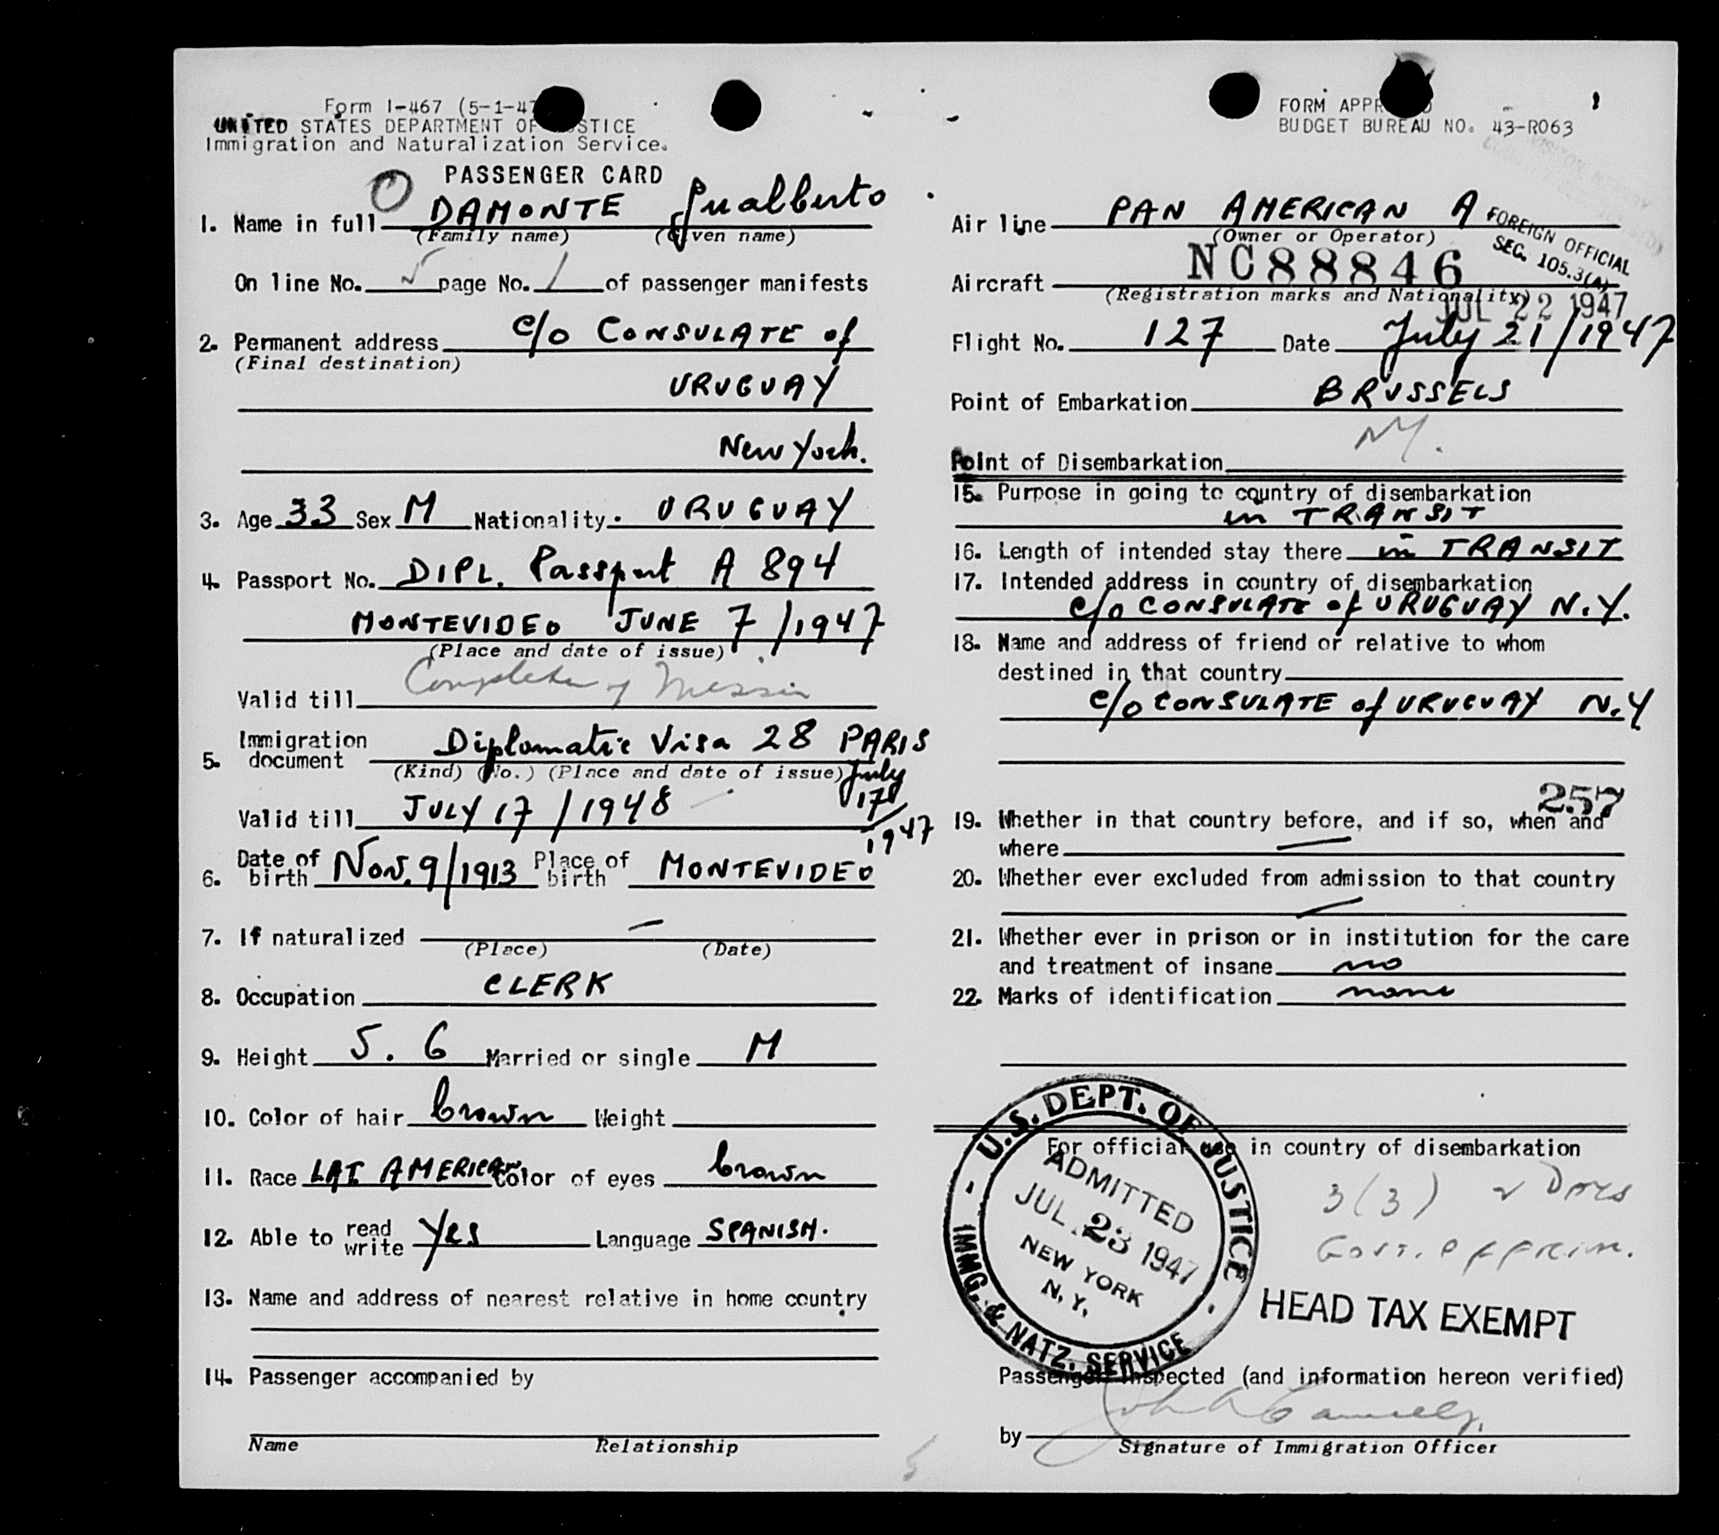 Form I-467 (5-1-47
UNITED STATES DEPARTMENT OF JUSTICE
Immigration and Naturalization Service.
PASSENGER CARD
1. Name in full DAMONTE Gualberto
(Family name) (Given name)
On line No. 5 page No. 1 of passenger manifests
2. Permanent address c/o CONSULATE of
(Final destination)
URUGUAY
New York.
3. Age 33 Sex M Nationality. URUGUAY
4. Passport No. DIPL. Passport A 894
MONTEVIDEO JUNE 7/1947
(Place and date of issue)
Completion of Mission
Valid till
5. Immigration document Diplomatic Visa 28 PARIS
(Kind) (No.) (Place and date of issue) July
17/
1947
Valid till JULY 17/1948
6. Date of birth Nov. 9/1913 Place of birth MONTEVIDEO
7. If naturalized —
(Place) (Date)
8. Occupation CLERK
9. Height 5.6 Married or single M
10. Color of hair brown Weight
11. Race LAT AMERICAN Color of eyes brown
12. Able to read write Yes Language SPANISH.
13. Name and address of nearest relative in home country
14. Passenger accompanied by
Name Relationship
FORM APPROVED
BUDGET BUREAU NO. 43-R063
Air line PAN AMERICAN A
(Owner or Operator)
FOREIGN OFFICIAL
SEC. 105.3(A)
JUL 22 1947
Aircraft NC88846
(Registration marks and Nationality)
Flight No. 127 Date July 21/1947
Point of Embarkation BRUSSELS
NY.
Point of Disembarkation
15. Purpose in going to country of disembarkation
in TRANSIT
16. Length of intended stay there in TRANSIT
17. Intended address in country of disembarkation
c/o CONSULATE of URUGUAY N.Y.
18. Name and address of friend or relative to whom
destined in that country
c/o CONSULATE of URUGUAY N.Y
257
19. Whether in that country before, and if so, when and
where —
20. Whether ever excluded from admission to that country
—
21. Whether ever in prison or in institution for the care
and treatment of insane no
22. Marks of identification none
For official use in country of disembarkation
U.S. DEPT. OF JUSTICE
IMMG. & NATZ. SERVICE
ADMITTED
JUL 23 1947
NEW YORK
N.Y.
3(3)
Govt.
HEAD TAX EXEMPT
Passenger inspected (and information hereon verified)
by
Signature of Immigration Officer